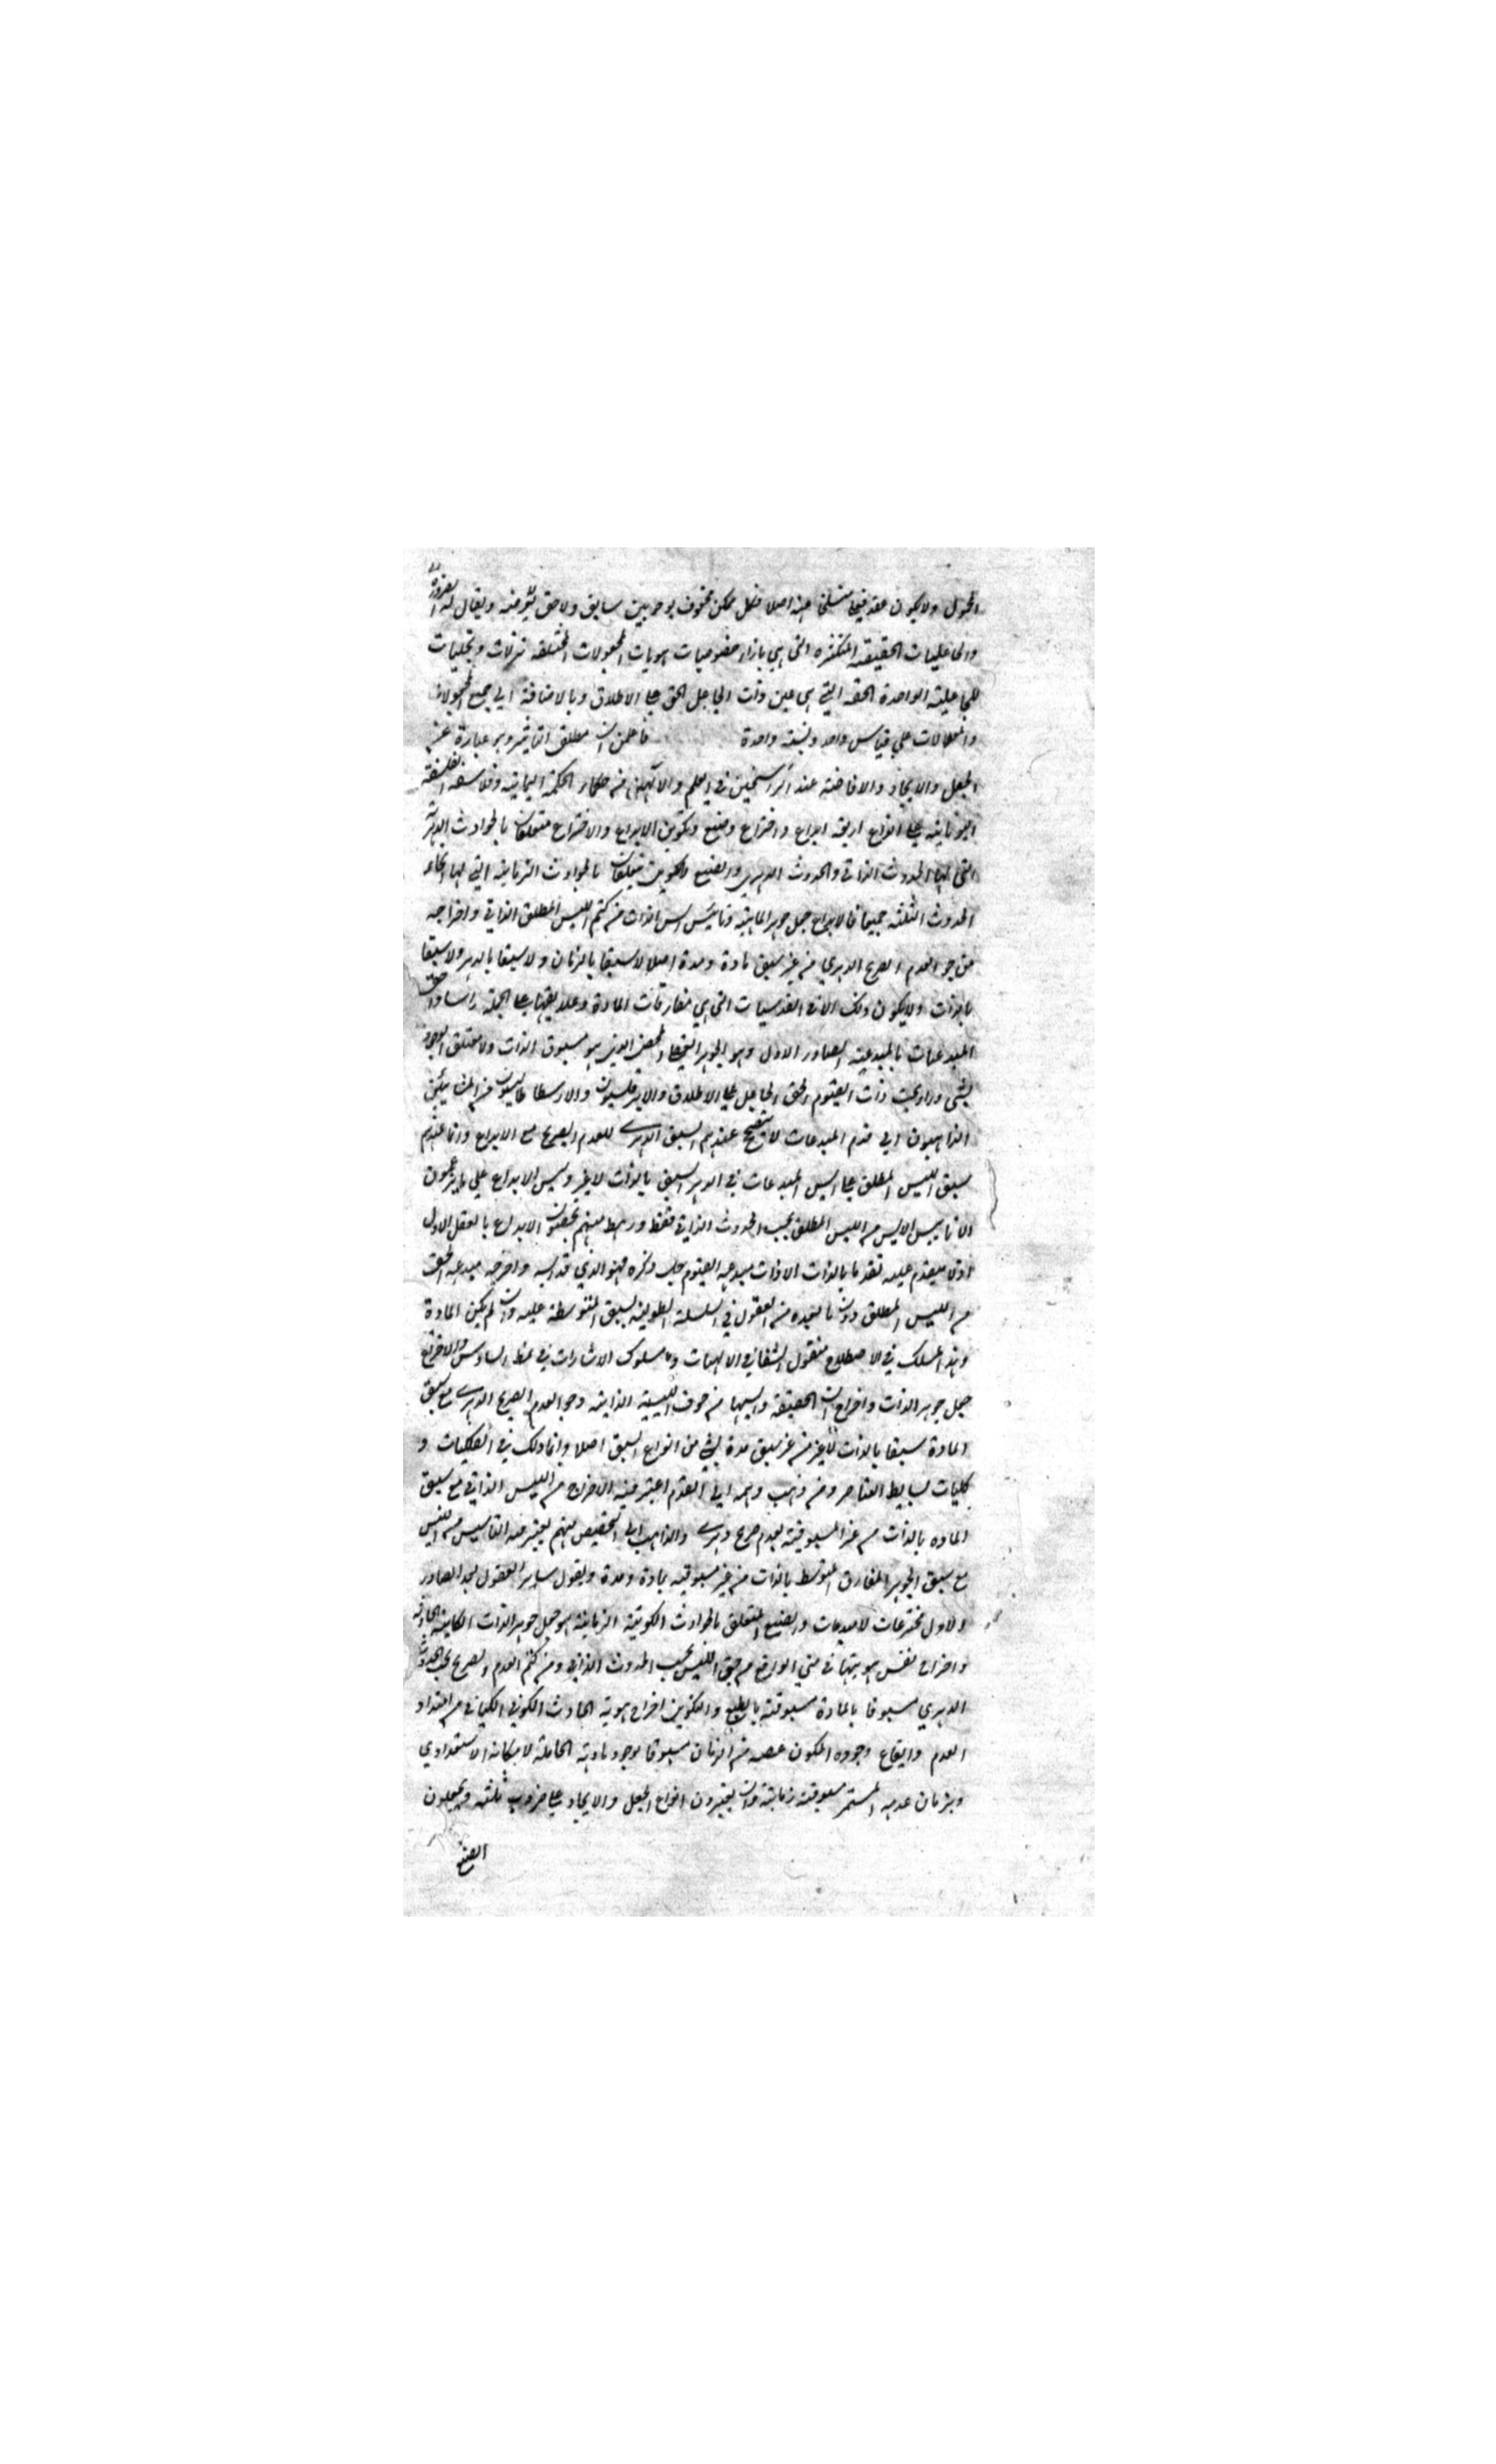 المحمول ولا يكون عقد فيها منسلخا عنه اصلا فكل ممكن محفوف بوجوبين سابق ولاحق ويقال له الضرورة
والجاعليات الحقيقية المتكثرة التي هي بازاء خصوصيات هويات المجعولات المختلفة تنزلات وتجليات
للجاعلية الواحدة الحقة التي هي عين ذات الجاعل الحق على الاطلاق وبالاضافة الى جميع المجعولات
والمعلولات على قياس واحد ونسبة واحدة فاعلمن ان مطلق التاثير وهو عبارة عن
الجعل والايجاد والافاضة عند الراسخين في العلم والالهيين من حكماء الحكمة اليمانية وفلاسفة الفلسفة
اليونانية على انواع اربعة ابداع واختراع وصنع وتكوين الابداع والاختراع متعلقان بالحوادث الدهرية
التي لها الحدوث الذاتي والحدوث الدهري والصنع والتكوين متعلقان بالحوادث الزمانية التي لها انحاء
الحدوث الثلثة جميعا فالابداع جعل جوهر الماهية وتاييس ايس الذات من كتم الليس المطلق الذاتي واخراجه
من جو العدم الصريح الدهري من غير سبق مادة ومدة اصلا لا سبقا بالزمان ولا سبقا بالدهر ولا سبقا
بالذات ولا يكون ذلك الا في القدسيات التي هي مفارقات المادة وعلايقها على الجملة راسا واحق
المبدعات بالمبدعية الصادر الاول وهو الجوهر العقلي المحض الذي هو مسبوق الذات ولا متعلق الوجود
بشي وراء بحت ذات القيوم الحق الجاعل على الاطلاق والابرقلسيون والارسطاطاليسيون من المشائين
الذاهبون الى قدم المبدعات لا يتصحح عندهم السبق الدهري للعدم الصريح مع الابداع وانما عندهم
سبق الليس المطلق على ايس المبدعات في الدهر السبق بالذات لا غير وليس الابداع على ما يزعمون
الا تاييس الايس من الليس المطلق بحسب الحدوث الذاتي فقط ورهط منهم يخصون الابداع بالعقل الاول
اذ لا يتقدم عليه تقدما بالذات الا ذات مبدعه القيوم جل ذكره فهو الذي قد ايسه واخرجه مبدعه الحق
من الليس المطلق دون ما بعده من العقول في السلسلة الطولية لسبق المتوسطة عليه وان لم يكن المادة
وهذا المسلك في الاصطلاح منقول الشفا في الالهيات ومسلوك الاشارات في نمط السادس والاختراع
جعل جوهر الذات واخراج الحقيقة وايسها من جوف الليسية الذاتية وجو العدم الصريح الدهري مع سبق
المادة سبقا بالذات لا غير من غير سبق مدة بشي من انواع السبق اصلا وانما ذلك في الفلكيات و
كليات بسايط العناصر ومن ذهب وهمه الى القدم اعتبر فيه الاخراج من الليس الذاتي مع سبق
المادة بالذات من غير المسبوقية بعدم صريح دهري والذاهب الى التخصيص منهم يعتبر فيه التاييس من الليس
مع سبق الجوهر المفارق المتوسط بالذات من غير مسبوقية بمادة ومدة ويقول ساير العقول بعد الصادر
الاول مخترعات لا مبدعات والصنع المتعلق بالحوادث الكونية الزمانية هو جعل جوهر الذات الكاينة الحادثة
واخراج نفس هويتها في متن الواقع من جو الليس بحسب الحدوث الذاتي ومن كتم العدم الصريح بحسب الحدوث
الدهري مسبوقا بالمادة مسبوقية بالطبع والتكوين اخراج هوية الحادث الكوني الكياني من امتداد
العدم وايقاع وجوده المكون حصة من الزمان مسبوقا بوجود مادته الحاملة لامكانه الاستعدادي
وبزمان عدمه المستمر مسبوقية زمانية وان يعتبرون انواع الجعل والايجاد على ضروب ثلثة ويجعلون
الصنع